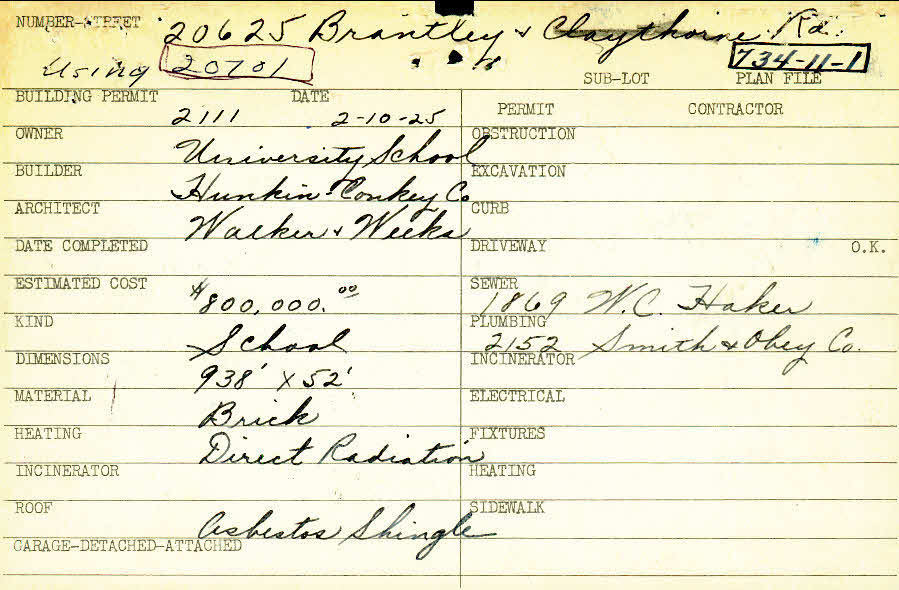 NUMBER-STREET 20625 Brantley & Claythorne Rd.
Using 20701 734-11-1
SUB-LOT PLAN FILE
BUILDING PERMIT 2111 DATE 2-10-25
PERMIT CONTRACTOR
OWNER University School
OBSTRUCTION
BUILDER Hunkin-Conkey Co
EXCAVATION
ARCHITECT Walker & Weeks
CURB
DATE COMPLETED
DRIVEWAY O.K.
ESTIMATED COST $800,000.00
SEWER 1869 W.C. Haker
KIND School
PLUMBING 2152 Smith & Obey Co.
DIMENSIONS 938' x 52'
INCINERATOR
MATERIAL Brick
ELECTRICAL
HEATING Direct Radiation
FIXTURES
INCINERATOR
HEATING
ROOF Asbestos Shingle
SIDEWALK
GARAGE-DETACHED-ATTACHED